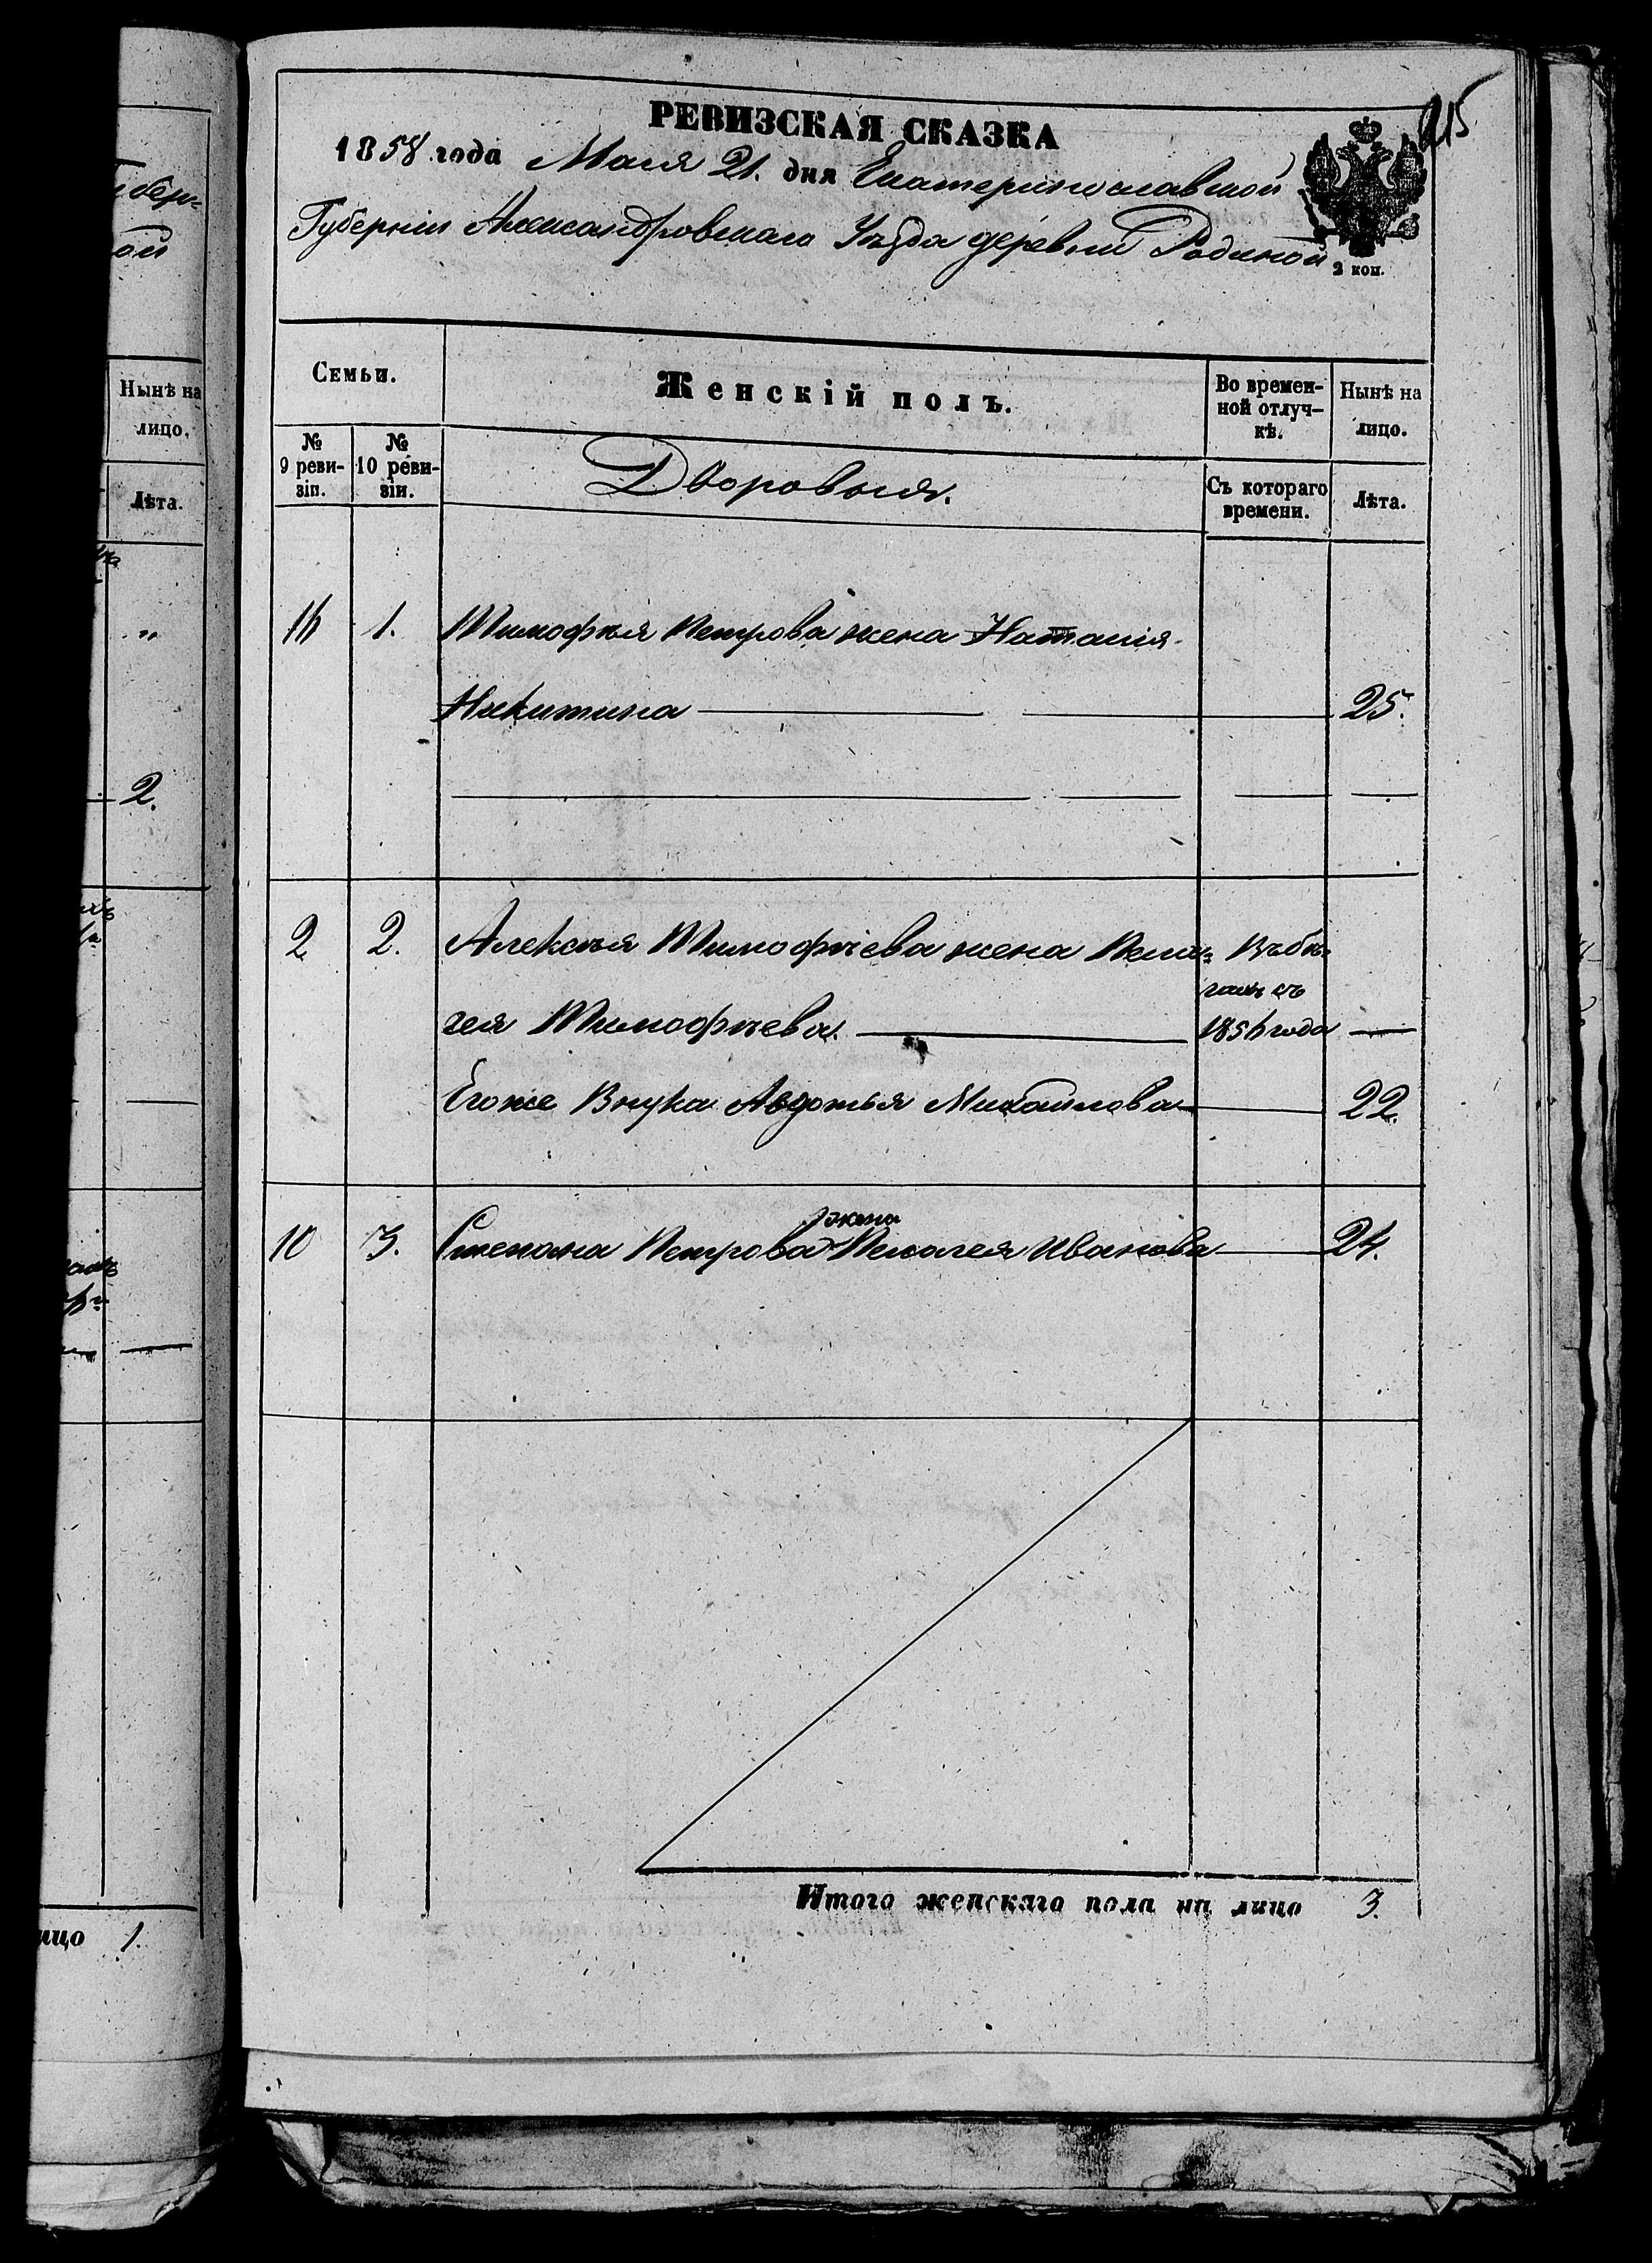 215
РЕВИЗСКАЯ СКАЗКА
1858 года Маія 21. дня Екатеринославской
Губерніи Александровскаго Уѣзда деревни Родиной
2 коп.
Семьи.
Женскій полъ.
Во времен-
ной отлуч-
кѣ.
Нынѣ на
лицо.
№
9 реви-
зіи.
№
10 реви-
зіи.
Дворовыя.
Съ котораго
времени.
Лѣта.
1. Тимофѣя Петрова жена Наталія
Никитина 25.
2 2. Алексѣя Тимофѣева жена Пела= Въ бѣ=
гея Тимофѣева. гахъ съ
1854 года
Егоже Внука Авдотья Михайлова 22.
жена
10 3. Степана Петрова Пелагея Иванова 24.
Итого женскаго пола на лицо 3.
Нынѣ на
лицо.
Лѣта.
„
2.
ицо 1.